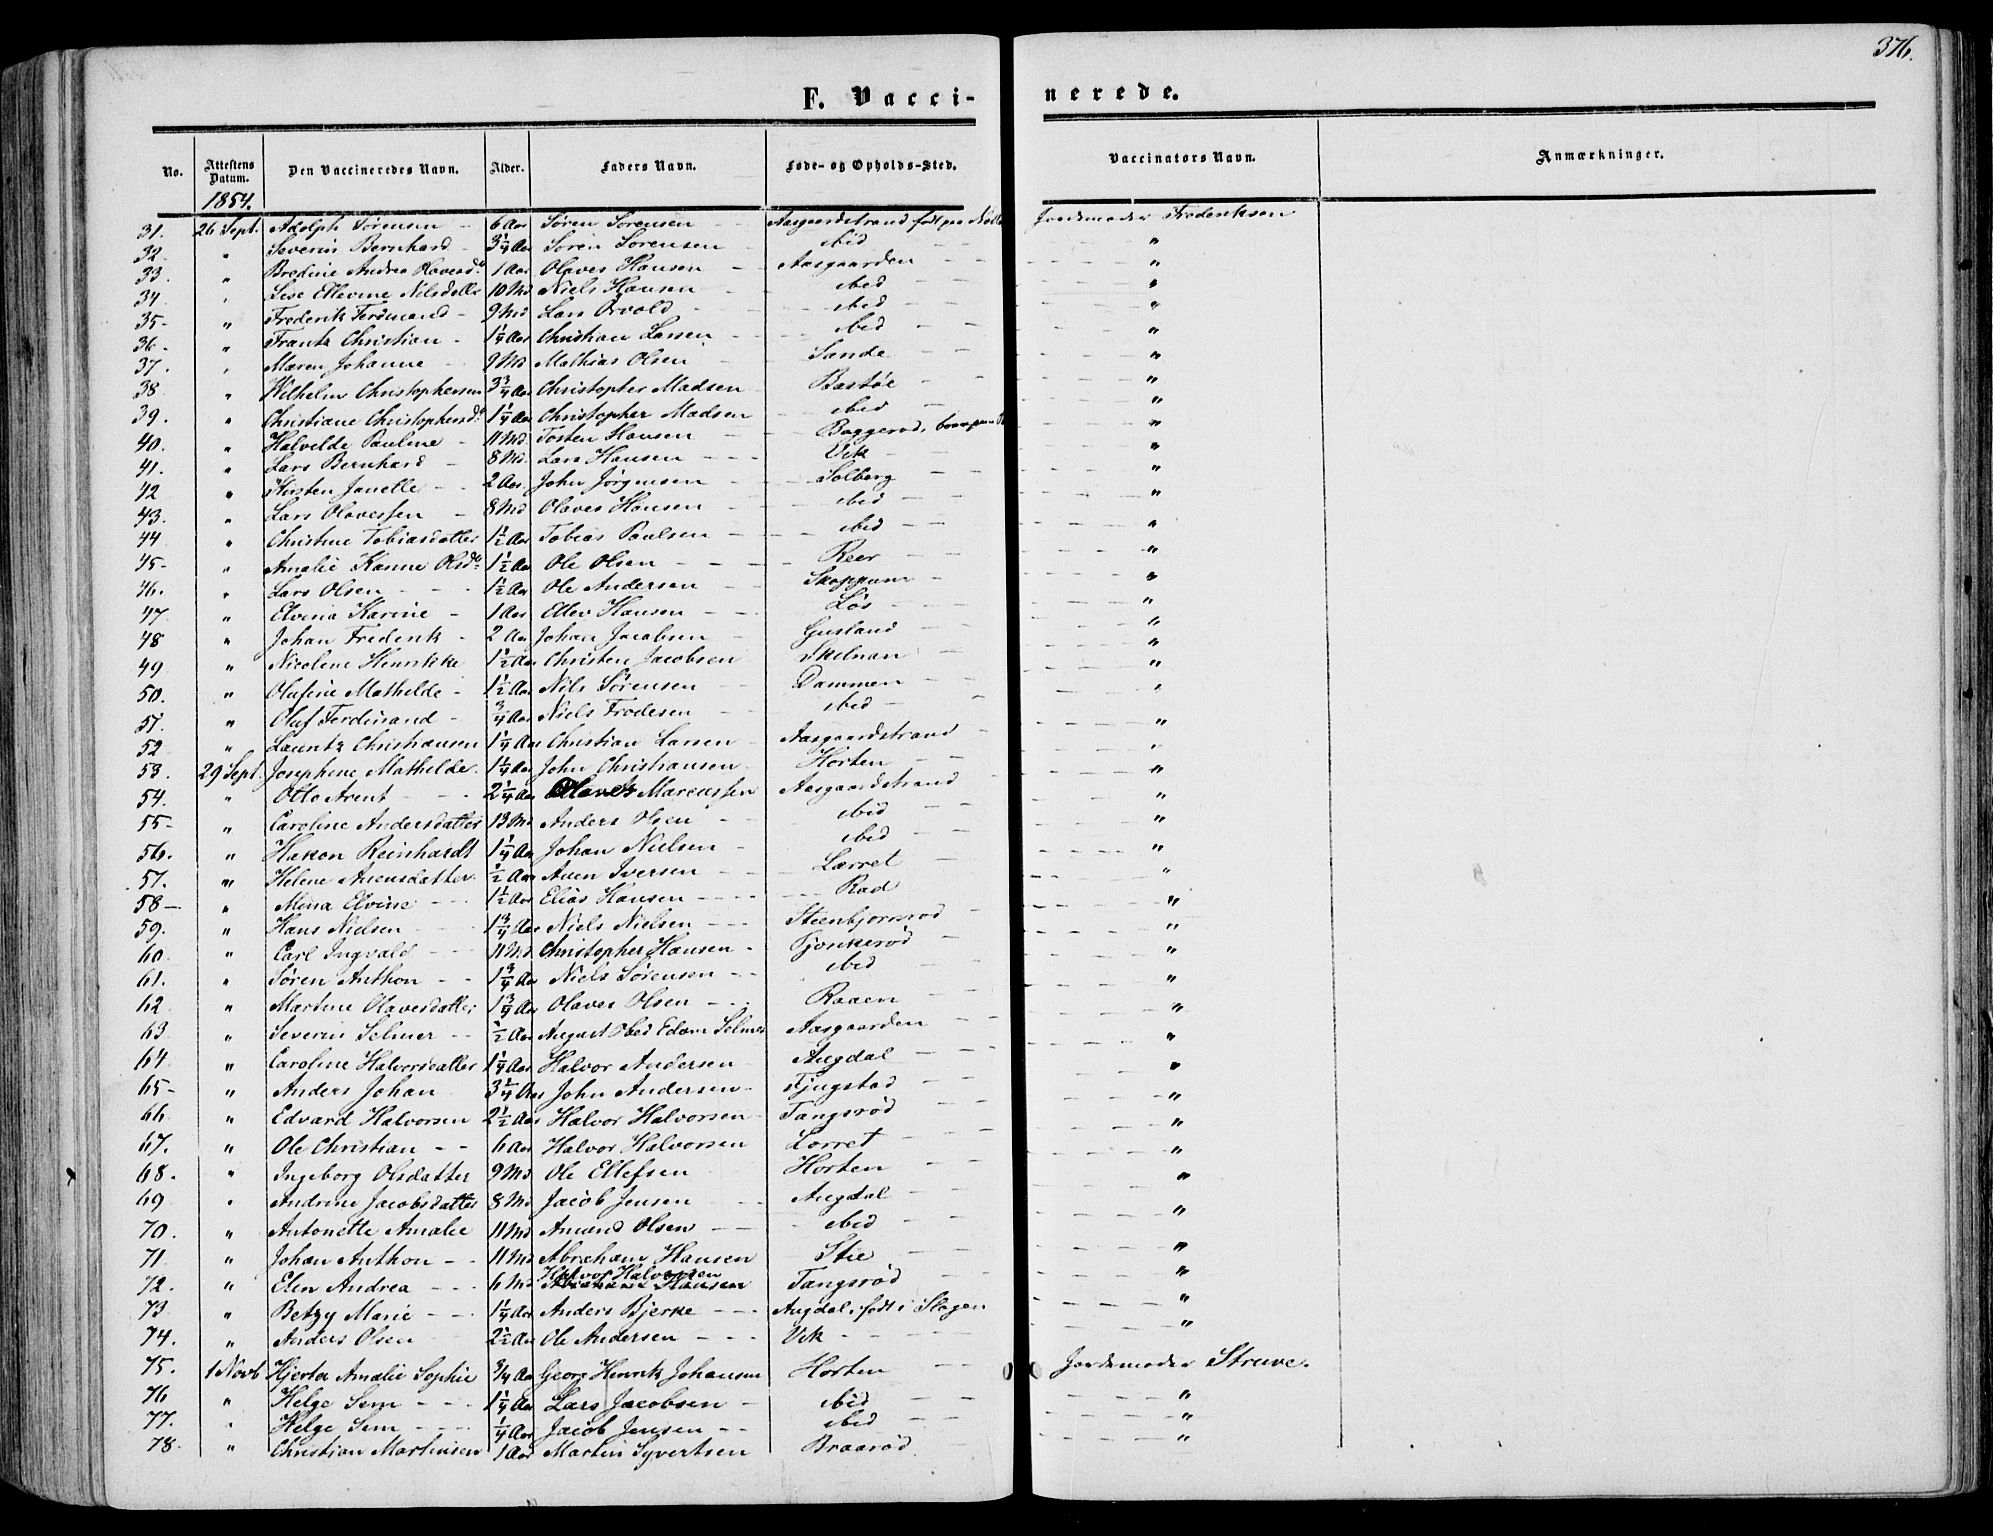 376.
F. Vaccinerede.
No. Attestens Datum. Den Vaccineredes Navn. Alder. Faders Navn. Føde- og Opholds-Sted. Vaccinators Navn. Anmærkninger.
1854.
31. 26 Sept. Adolph Sørensen - 6 Aar Søren Sørensen - Aasgaardstrand født paa Jordemoder Frederiksen
32 " Severin Bernhard - 3 1/4 Aar Søren Sørensen - ibid - "
33. " Bredine Andrea Olavesd. 1 Aar Olaves Hansen - Aasgaarden - "
34. " Lise Ellevine Nilsdatter 10 Md Niels Hansen - ibid - "
35- " Frederik Ferdinand - 9 Md Lars Orvold - ibid - "
36- " Frantz Christian - 1 1/4 Aar Christian Larsen - ibid - "
37. " Maren Johanne - 9 Md Mathias Olsen - Sande - "
38 " Wilhelm Christophersen 3 3/4 Aar Christopher Madsen - Bastöe - "
39. " Christiane Christophersd. 1 1/4 Aar Christopher Madsen - ibid - "
40. " Halvelde Pauline - 11 Md. Tosten Hansen - Baggerød, "
41. " Lars Bernhard - 8 Md. Lars Hansen - Vik - "
42 " Kirsten Janette - 2 Aar. John Jørgensen - Solberg - "
43. " Lars Olavessen - 8 Md Olaves Hansen - ibid - "
44 " Christine Tobiasdatter 1 1/2 Aar Tobias Paulsen - ibid - "
45- " Amalie Hanne Olsd. 1 1/2 Aar Ole Olsen - Reer - "
46. " Lars Olsen - 1 1/2 Aar Ole Andersen - Skoppum - "
47. " Elvina Karine - 1 Aar Ellev Hansen - Lös - "
48 " Johan Frederik - 2 Aar Johan Jacobsen - Gusland - "
49 " Nicoline Henrikke 1 1/2 Aar Christen Jacobsen - "
50. " Olufine Mathilde - 1 1/2 Aar Nils Sørensen - Dammen - "
51. " Oluf Ferdinand - 3/4 Aar Niels Frodesen - ibid - "
52 " Lauritz Christiansen 1 1/4 Aar Christian Larsen - Aasgaardstrand - "
53. 29 Sept. Josephine Mathilde. 1 1/4 Aar John Christiansen. Horten - "
54. " Otto Arent - 2 1/4 Aar Olaves Marcussen Aasgaardstrand - "
55- " Caroline Andersdatter 13 Md Anders Olsen - ibid - "
56. " Hakon Reinhardt 1 1/4 Aar Johan Nielsen - ibid - "
57. " Helene Auensdatter. 1/2 Aar Auen Iversen - Lørret - "
58- " Mina Elvine - 1 1/2 Aar Elias Hansen - Rød "
59. " Hans Nielsen - 1 3/4 Aar Niels Nielsen - Steenbjørnrød - "
60. " Carl Ingvald - 11 Md Christopher Hansen - Gjonkerød - "
61. " Søren Anthon - 1 3/4 Aar Niels Sørensen - ibid - "
62 " Martine Olavesdatter 1 3/4 Aar Olaves Olsen - Raaen - "
63 " Severin Selmer - 1/2 Aar August Obed Edom Selmer Aasgaarden - "
64. " Caroline Halvorsdatter 1 1/4 Aar Halvor Andersen - Augdal - "
65- " Anders Johan 3 1/4 Aar John Andersen - Fjugstad - "
66 " Edvard Halvorsen 2 1/2 Aar Halvor Halvorsen - Tangsrød - "
67. " Ole Christian - 6 Aar Halvor Halvorsen Lørret - "
68. " Ingeborg Olsdatter 9 Md Ole Ellefsen Horten - "
69 " Andrine Jacobsdatter 8 Md Jacob Jensen - Augdal - "
70. " Antonette Amalie 11 Md Amund Olsen - ibid - "
71 " Johan Anthon - 11 Md Abraham Hansen Stie - "
72. " Elen Andrea - 6 Md Halvor Halvorsen Abraham Hansen Tangsrød - "
73. " Betzy Marie - 1 1/4 Aar Anders Bjerke - Augdal, født i Slagen "
74. " Anders Olsen - 2 1/2 Aar Ole Andersen - Vik - "
75. 1 Novb Hjerta Amalie Sophie 3/4 Aar Georg Henrik Johansen Horten - Jordemoder Struve.
76 " Helge Sem - 1 1/4 Aar Lars Jacobsen - ibid - "
77. " Helge Sem - 1/4 Aar Jacob Jensen - ibid - "
78. " Christian Martinsen 1 Aar Martin Syvertsen Braarød - "